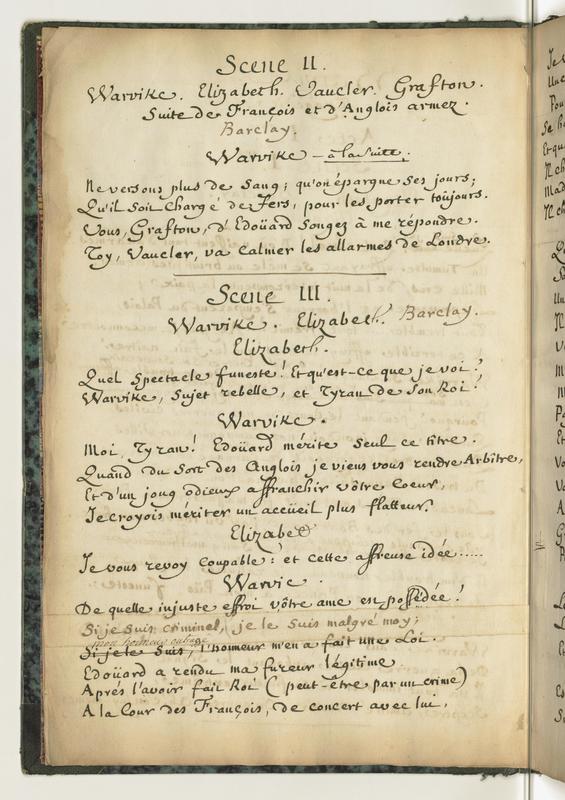 Scene II.
Warvike. Elizabeth. Vaucler. Grafton.
Suite de François et d'Anglois armez.
Barclay.
Warvike – à la suite.
Ne versons plus de sang; qu'on épargne ses jours;
Qu'il soit chargé de Fers, pour les porter toûjours.
Vous, Grafton, d'Edoüard songez à me répondre.
Toy, Vaucler, va calmer les allarmes de Londre.
Scene III.
Warvike. Elizabeth. Barclay.
Elizabeth.
Quel spectacle funeste! Et qu'est-ce que je voi?
Warvike, sujet rebelle, et Tyran de son Roi!
Warvike.
Moi, Tyran! Edoüard mérite seul ce titre.
Quand du sort des Anglois je viens vous rendre Arbitre,
Et d'un joug odieux affranchir vôtre coeur,
Je croyois mériter un accüeil plus flatteur.
Elizabet
Je vous revoy coupable: et cette affreuse idée.....
Warvic.
De quelle injuste effroi vôtre ame est possédée!
Si je suis criminel, je le suis malgré moy;
mon honneur outragé
Si je le suis, l'honneur m'en a fait une Loi.
Edoüard a rendu ma fureur légitime.
Aprés l'avoir fait Roi (peut-être par un crime)
A la Cour des François, de concert avec lui,